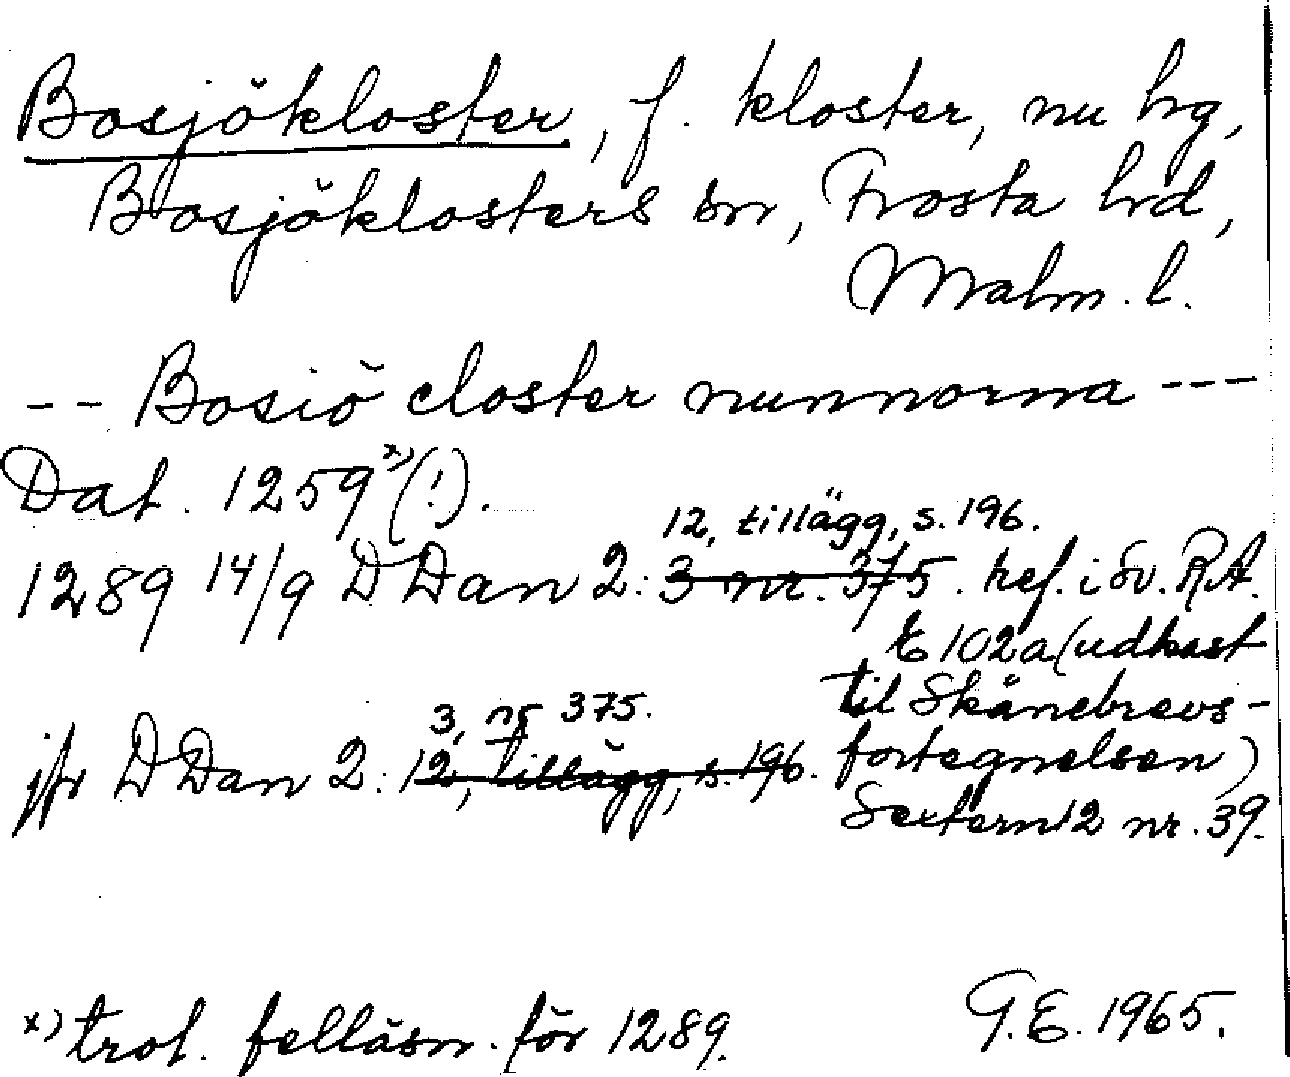 Bosjökloster, f. kloster, nu hg,
Bosjöklosters sn, Frosta hd,
Malm. l.
-- Bosiö closter nunnorna ---
Dat. 1259 x) (!).
12, tillägg, s. 196.
1289 14/9 D Dan 2: 3 nr. 375. ref. i Sv. R.A.
E 102a (udkast
til Skånebrevs-
3, nr 375.
jfr D Dan 2: 12, tillägg, s. 196. fortegnelsen)
Sextern 12 nr. 39.
x) trol. felläsn. för 1289.
G.E. 1965.